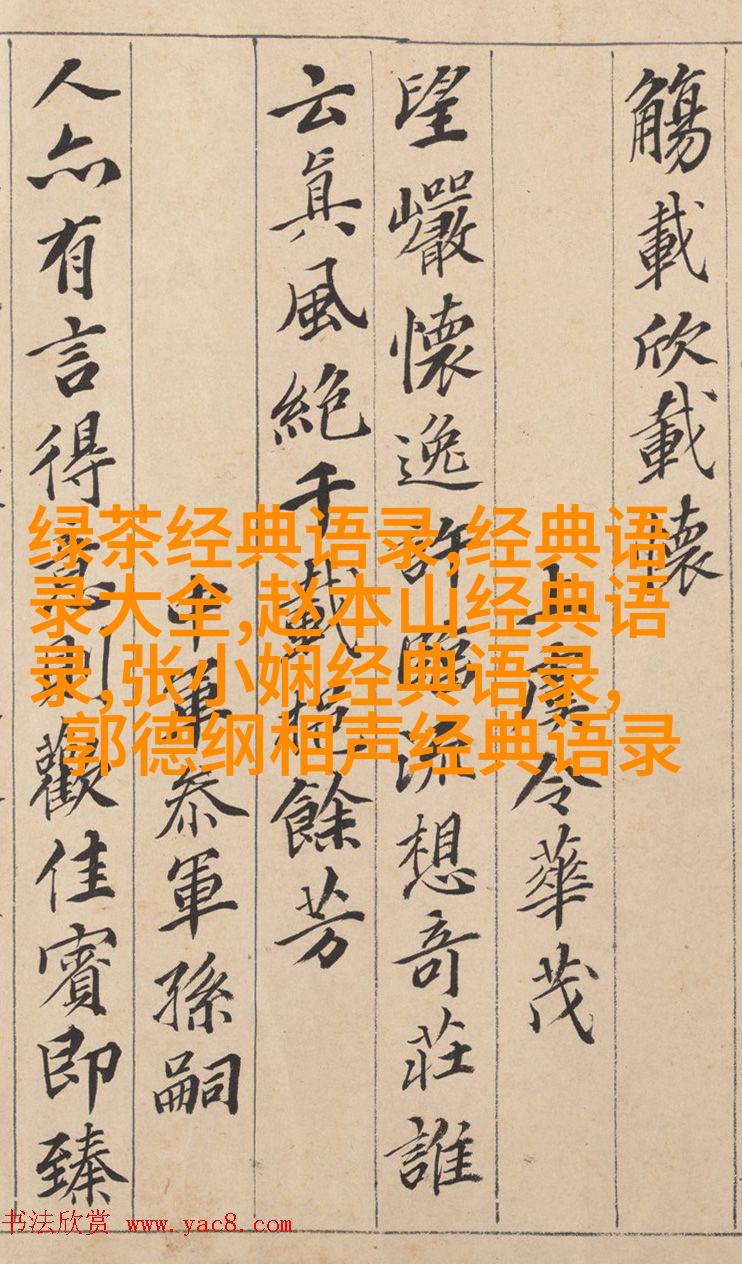 觴載欣載懷
上虞令華茂
望巖懷逸許臨流想奇莊誰
云眞風絶千載挹餘芳
中軍叅軍孫嗣
人亦有言得意則歡佳賓即臻
绿茶经典语录,经典语
录大全,赵本山经典语
录,张小娴经典语录,
郭德纲相声经典语录
书法欣赏 www.yac8.com